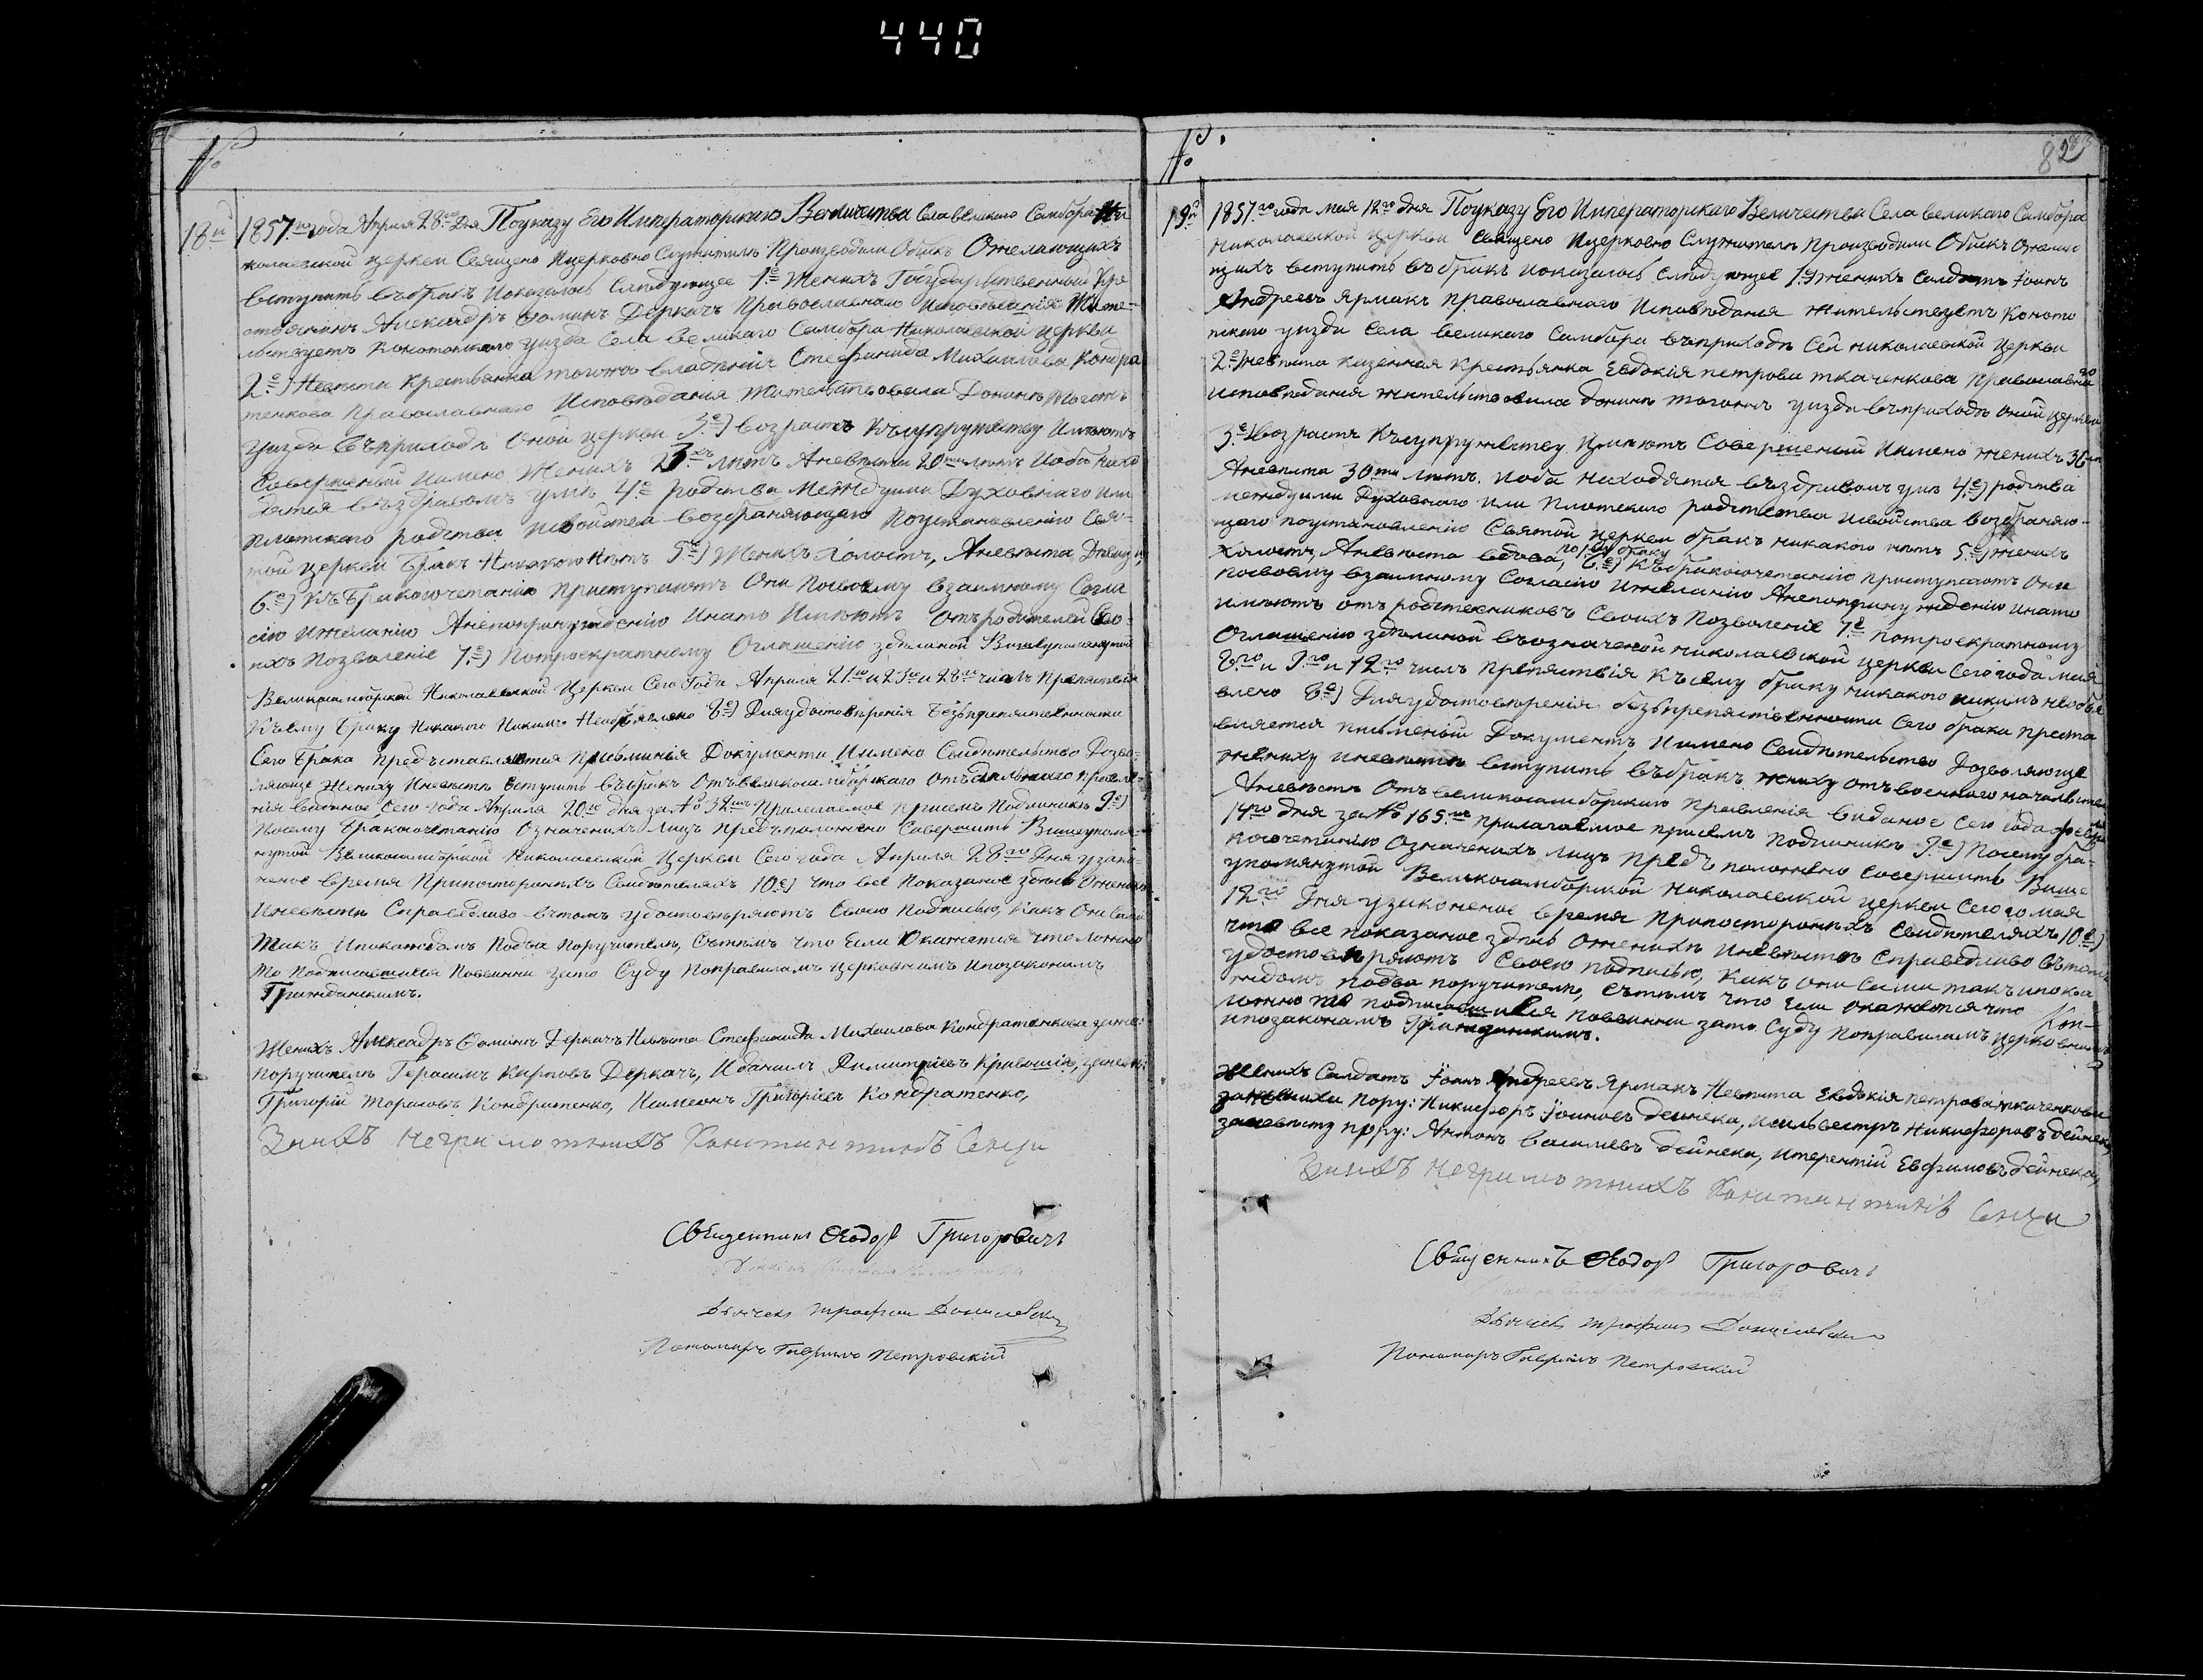 440
№
18й
1857го года Априля 28го Дня Поуказу Его Императорскаго Величества Села великаго Самбора Ни
колаевской церкви Священо Ицерковно Служители Производили Обискъ Ожелающихъ
вступить въбракъ Иоказалось Следующее 1.е Женихъ Государственный Кре
стьянинъ Александръ Фоминъ Деркачъ Православнаго Исповѣданія Жите
льствуетъ Конотопскаго уизда Села великаго Самбора Николаевской Церкви
2.е) Невѣста Крестьянка тогожъ владѣнія Стефанида Михаилова Кондра
тенкова Православнаго Исповѣданія Жительствовала Донинѣ тогожъ
уизда въприходѣ Оной церкви 3.е) возрастъ Къ супружеству Имѣютъ
Совершеный Иимено Женихъ 23хъ лѣтъ Аневѣста 20ти лѣтъ Иоба нахо
дятся въздравомъ умѣ 4.е родства Междуими Духовнаго или
плотскаго родства Исвойства возбраняющаго Поустановленію Свя-
той церкви Бракъ Никакого Нѣтъ 5.е) Женихъ Холостъ, Аневѣста Дѣвица,
6.е) КъБракосочетанію Приступаютъ Они Посвоему Взаимному Согла
сію Ижеланію Анепопринужденію Инато Имѣютъ Отъродителей Сво-
ихъ Позволеніе 7.е) Потроекратному Оглашенію зделаной Вишеупомянутой
Великосамборской Николаевской Церкви Сего Года Априля 21го и 23го и 28го числъ Препятствія
Къему Браку Никакого Никимъ Необъявлено 8.е) Дляудостовѣренія безъпрепятственности
Сего Брака Предъставляются Писмения Документи Иимено Свидетельство Дозво-
ляюще Жениху Иневѣстѣ Вступить въбракъ Отъвеликосамборскаго отъдѣльнаго правле-
нія виданое Сего года Априля 20го дня за№ 32мъ Прилагаемое присемъ Подлинникъ 9.е)
Посему Бракосочетанію Означенихъ Лицъ предъположено Совершить Вишеупомя-
нутой Великосамборской Николаевской Церкви Сего года Априля 28го Дня узако-
неное время Припостороннихъ Свидетеляхъ 10.е) Что все Показаное здѣсь Ожених
Иневѣсти Справедливо вътомъ удостовѣряютъ Своею Подписью, Какъ Они Сами
Такъ Ипокаждомъ Подва Поручителя, Сътѣмъ что Если Окажется что ложно
то Подписавшиеся Повинни зато Суду Поправиламъ Церковнимъ Ипозаконамъ
Гражданскимъ.
Женихъ Александръ Фоминъ Деркачъ Невѣста Стефанида Михаилова Кондратенкова зажен:
Поручители Герасимъ Карповъ Деркачъ, Иданилъ Димитріевъ Кривошія, заневѣ:
Григорій Тарасовъ Кондратенко, Исимеонъ Григоріевъ Кондратенко,
Занихъ Неграмотнихъ Константинъ Сенчи
Священникъ Ѳеодоръ Григоровичъ
Дьячекъ Трофим Данилевскій
Пономарь Гавриилъ Петровскій
№
82
19й
1857го года Мая 12го дня Поуказу Его Императорскаго Величества Села великаго Самбора
Николаевской церкви Священо Ицерковно Служители Производили Обискъ Ожелаю
щихъ вступить въ бракъ Иоказалось Следующее 1.е) женихъ Салдатъ Іоанъ
Андреевъ Ярмакъ Православнаго Исповѣданія Жительствуетъ Коното
пскаго уизда Села великаго Самбора въприходѣ Сей Николаевской Церкви
2.е) невѣста казенная Крестьянка Евдокія петрова ткаченкова Православнаго
исповѣданія жительствовала донинѣ тогожъ уизда въприходѣ оной церкви
3.е) возрастъ Къ супружеству Имѣютъ Совершеный Иимено женихъ 36 лѣ
Аневѣста 30ти лѣтъ. Иоба находятся въздравомъ умѣ 4.е) родства
междуими Духовнаго или Плотскаго родства Исвойства возбраняю-
щаго поустановленію Святой церкви бракъ никакого нѣтъ 5.е) женихъ
холостъ, Аневѣста вдова, по 1м браку 6.е) КъБракосочетанію Приступаютъ Они
посвоему взаимному Согласію Ижеланію Анепопринужденію инато
имѣютъ отъ родственниковъ Своихъ Позволеніе 7.е Потроекратному
Оглашенію зделаной въозначеной николаевской церкви Сего года мая
8го и 9го и 12го числъ препятствія Къ сему браку никакого никимъ необья
влено 8.е) Дляудостовѣренія безъпрепятственности Сего брака предста
вляется писмений Документъ Иимено Свидетельство Дозволяюще
жениху иневѣстѣ вступить въбракъ жениху отъ военнаго начальства
Аневѣстѣ Отъ великосамборскаго правленія виданое Сего года февр
14го Дня за № 165м прилагаемое присемъ подлинникъ 9.е) Посему бра-
косочетанію Означенихъ лицъ предъположено Совершить Више
упомянутой Великосамборской Николаевской церкви Сего мая
12го Дня узаконеное время Припостороннихъ Свидетеляхъ 10.е)
что все показаное здѣсь Оженихѣ Иневѣстѣ Справедливо вътомъ
удостовѣряютъ Своею подписью, Какъ они Сами такъ ипока
ждомъ подва поручителя, Сътѣмъ что Если окажется что
ложно то подписавшиеся повинни зато Суду поправиламъ церковнимъ
ипозаконамъ Гражданскимъ.
Женихъ Салдатъ Іоанъ Андреевъ Ярмакъ Невѣста Евдокія петрова ткаченкова
зажениха пору: Никифоръ Іоановъ дейнека, Исильвестръ Никифоровъ дейнека,
заневѣсту пору: Антонъ василиевъ дейнека, итерентій Евфимовъ дейнека,
Занихъ Неграмотнихъ Константинъ Сенчи
Священникъ Ѳеодоръ Григоровичъ
Дьячекъ Трофим Данилевскій
Пономарь Гавриилъ Петровскій